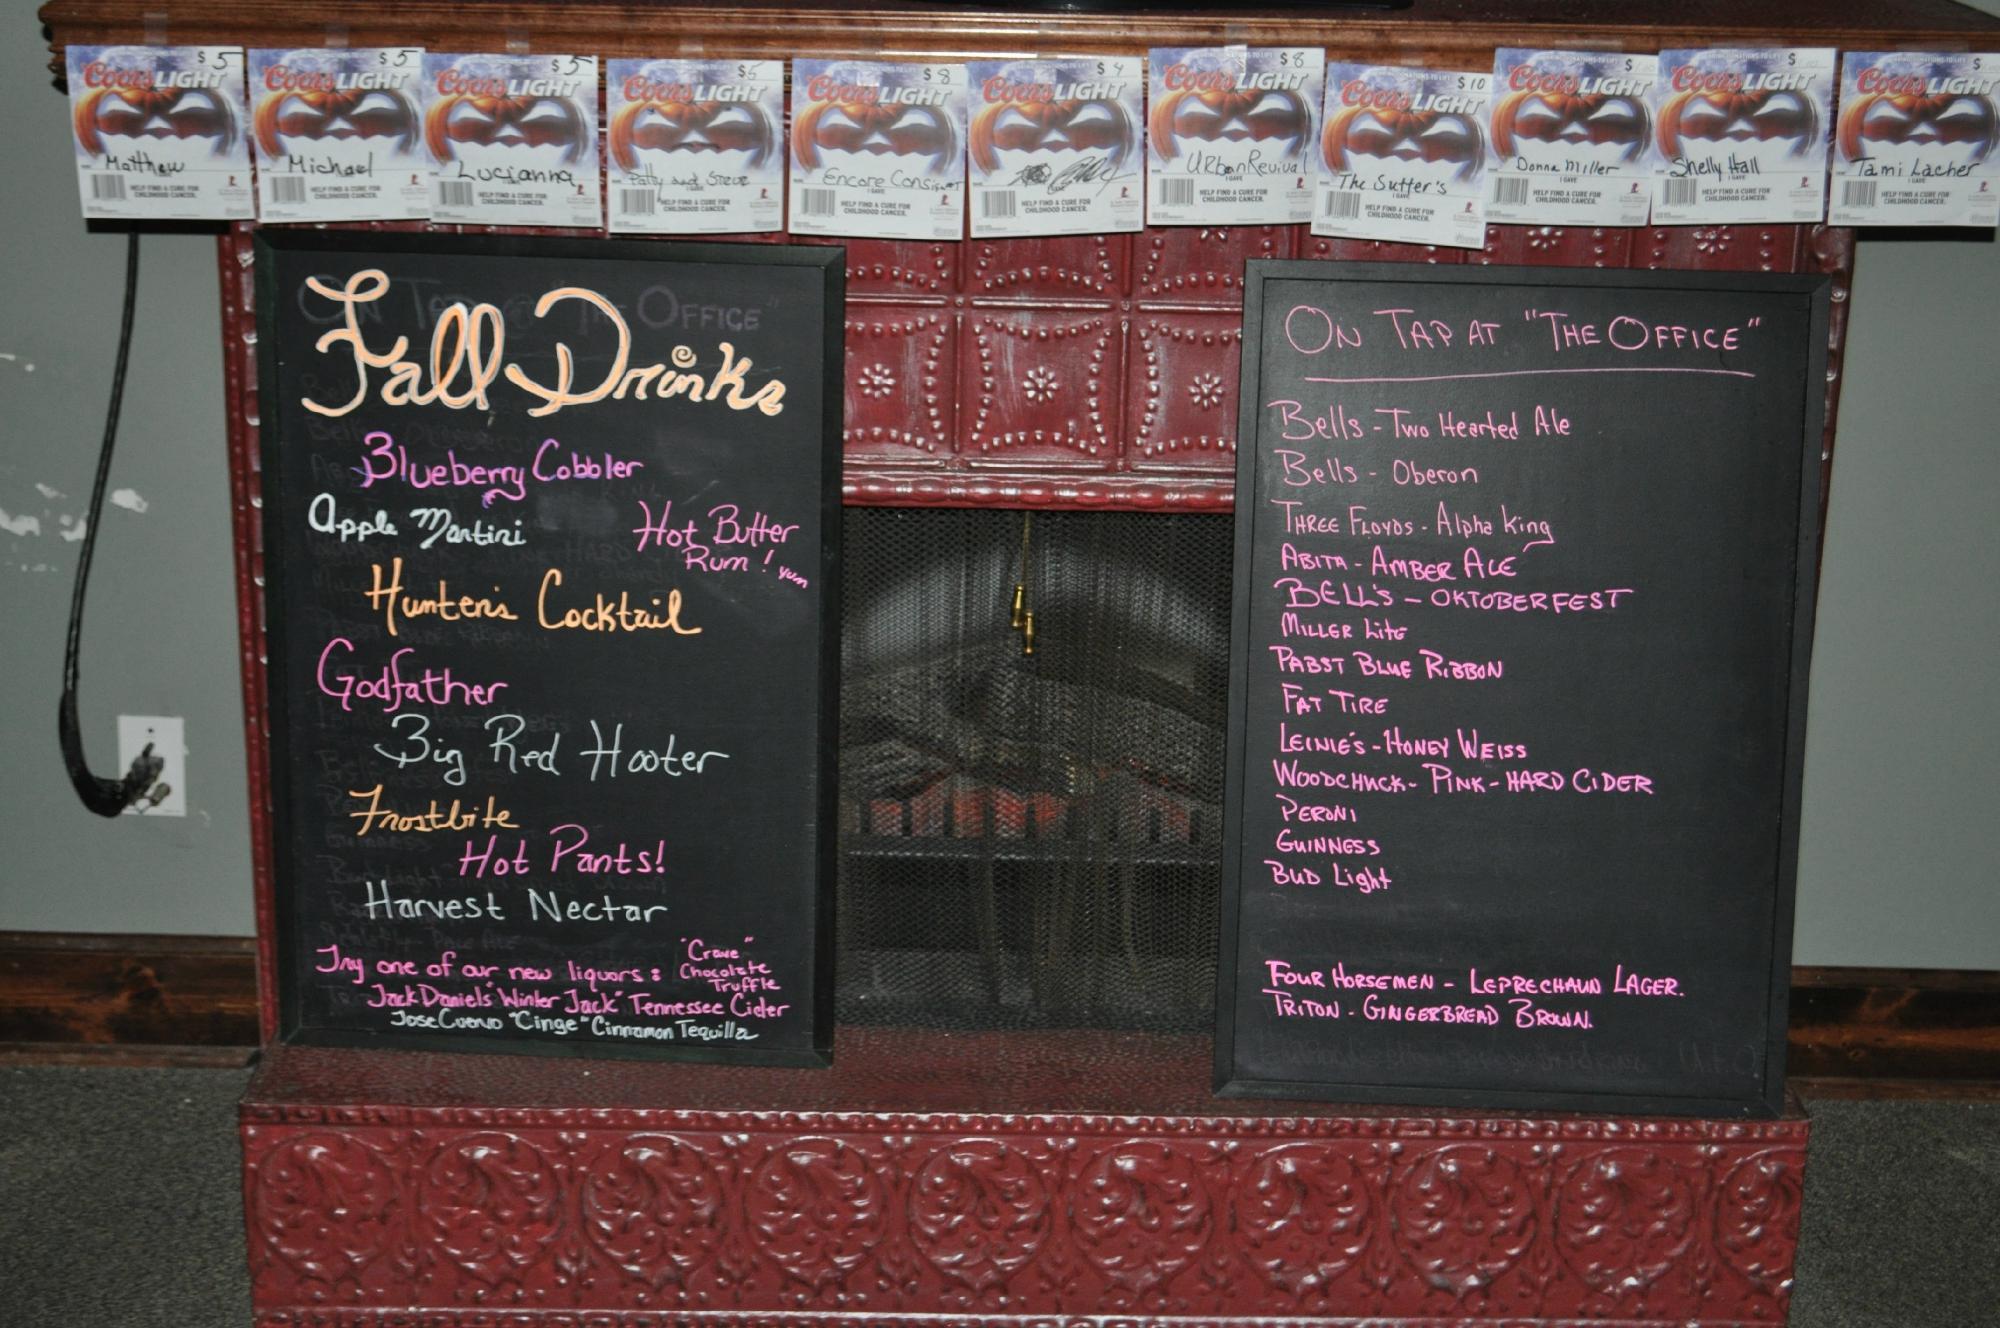 $ 5
Coors LIGHT
Matthew
HELP FIND A CURE FOR
CHILDHOOD CANCER.
$ 5
Coors LIGHT
Michael
HELP FIND A CURE FOR
CHILDHOOD CANCER.
$ 5
Coors LIGHT
Lucianna
HELP FIND A CURE FOR
CHILDHOOD CANCER.
$5
Coors LIGHT
Patty and Steve
I GAVE
HELP FIND A CURE FOR
CHILDHOOD CANCER.
$ 8
Coors LIGHT
Encore Consignment
I GAVE
HELP FIND A CURE FOR
CHILDHOOD CANCER.
$ 4
Coors LIGHT
HELP FIND A CURE FOR
CHILDHOOD CANCER.
$ 8
Coors LIGHT
URban Revival
I GAVE
HELP FIND A CURE FOR
CHILDHOOD CANCER.
$ 10
Coors LIGHT
The Sutter's
I GAVE
HELP FIND A CURE FOR
CHILDHOOD CANCER.
$
Coors LIGHT
Donna Miller
I GAVE
HELP FIND A CURE FOR
CHILDHOOD CANCER.
$
Coors LIGHT
Shelly Hall
I GAVE
HELP FIND A CURE FOR
CHILDHOOD CANCER.
$
Coors LIGHT
Tami Lacher
I GAVE
HELP FIND A CURE FOR
CHILDHOOD CANCER.
Fall Drinks
Blueberry Cobbler
Apple Martini
Hot Butter
Rum! yum
Hunter's Cocktail
Godfather
Big Red Hooter
Frostbite
Hot Pants!
Harvest Nectar
Try one of our new liquors:
"Crave"
Chocolate
Truffle
Jack Daniels "Winter Jack" Tennessee Cider
Jose Cuervo "Cinge" Cinnamon Tequilla
ON TAP AT "THE OFFICE"
Bells - Two Hearted Ale
Bells - Oberon
THREE FLOYDS - Alpha King
ABITA - AMBER ALE
BELL'S - OKTOBERFEST
MILLER Lite
PABST BLUE RIBBON
FAT TIRE
LEINIE'S - HONEY WEISS
WOODCHUCK - PINK - HARD CIDER
PERONI
GUINNESS
BUD Light
FOUR HORSEMEN - LEPRECHAUN LAGER.
TRITON - GINGERBREAD BROWN.